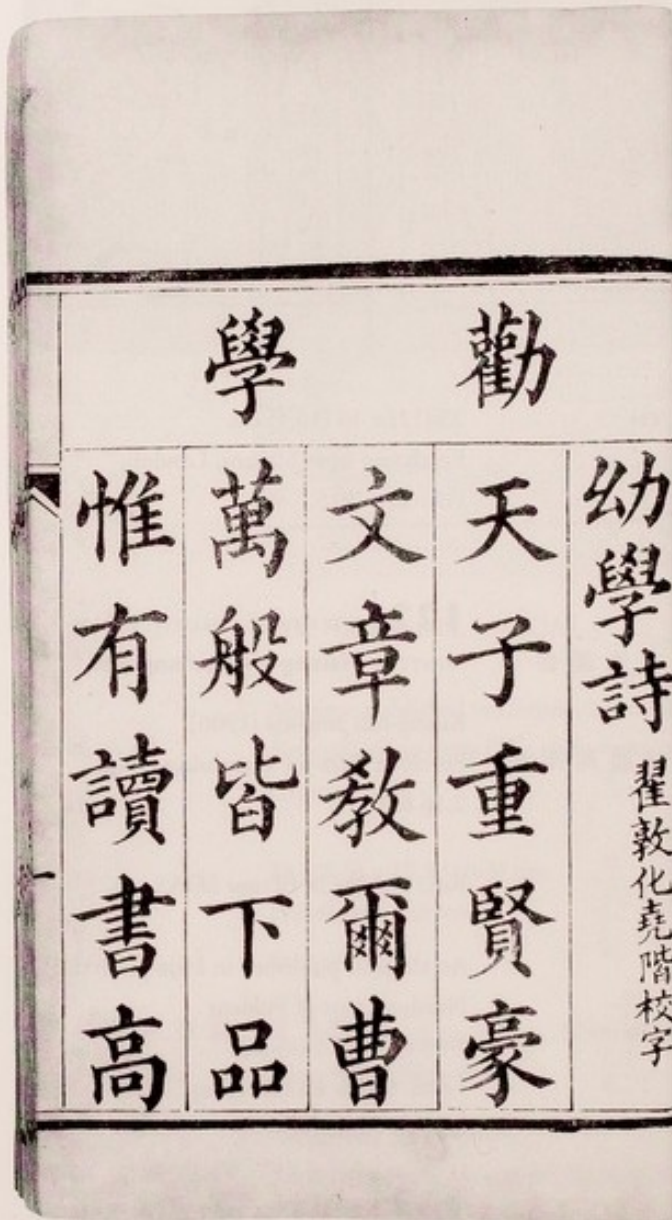 勸學
幼學詩 翟敦化堯階校字
天子重賢豪
文章教爾曹
萬般皆下品
惟有讀書高
一